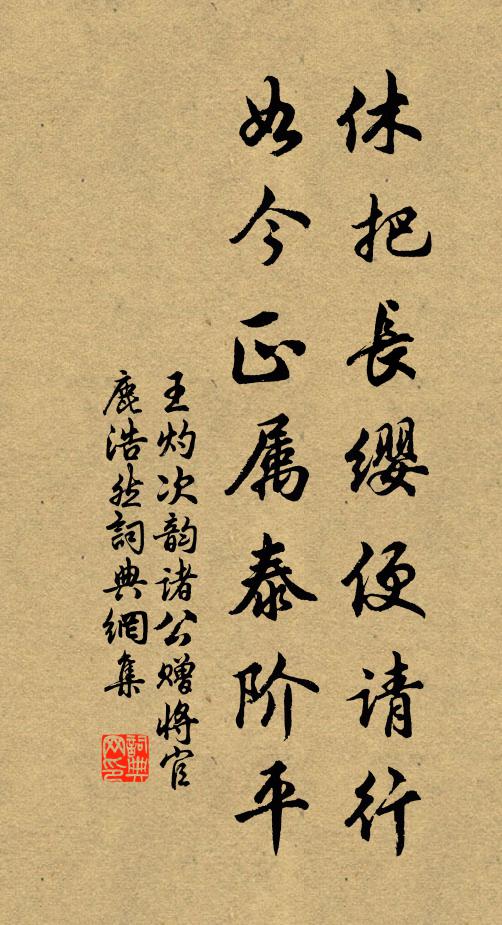 休把長缨便请行
如今正属泰阶平
王灼次韵诸公赠将官
鹿浩然詞典網集
詞典
网印